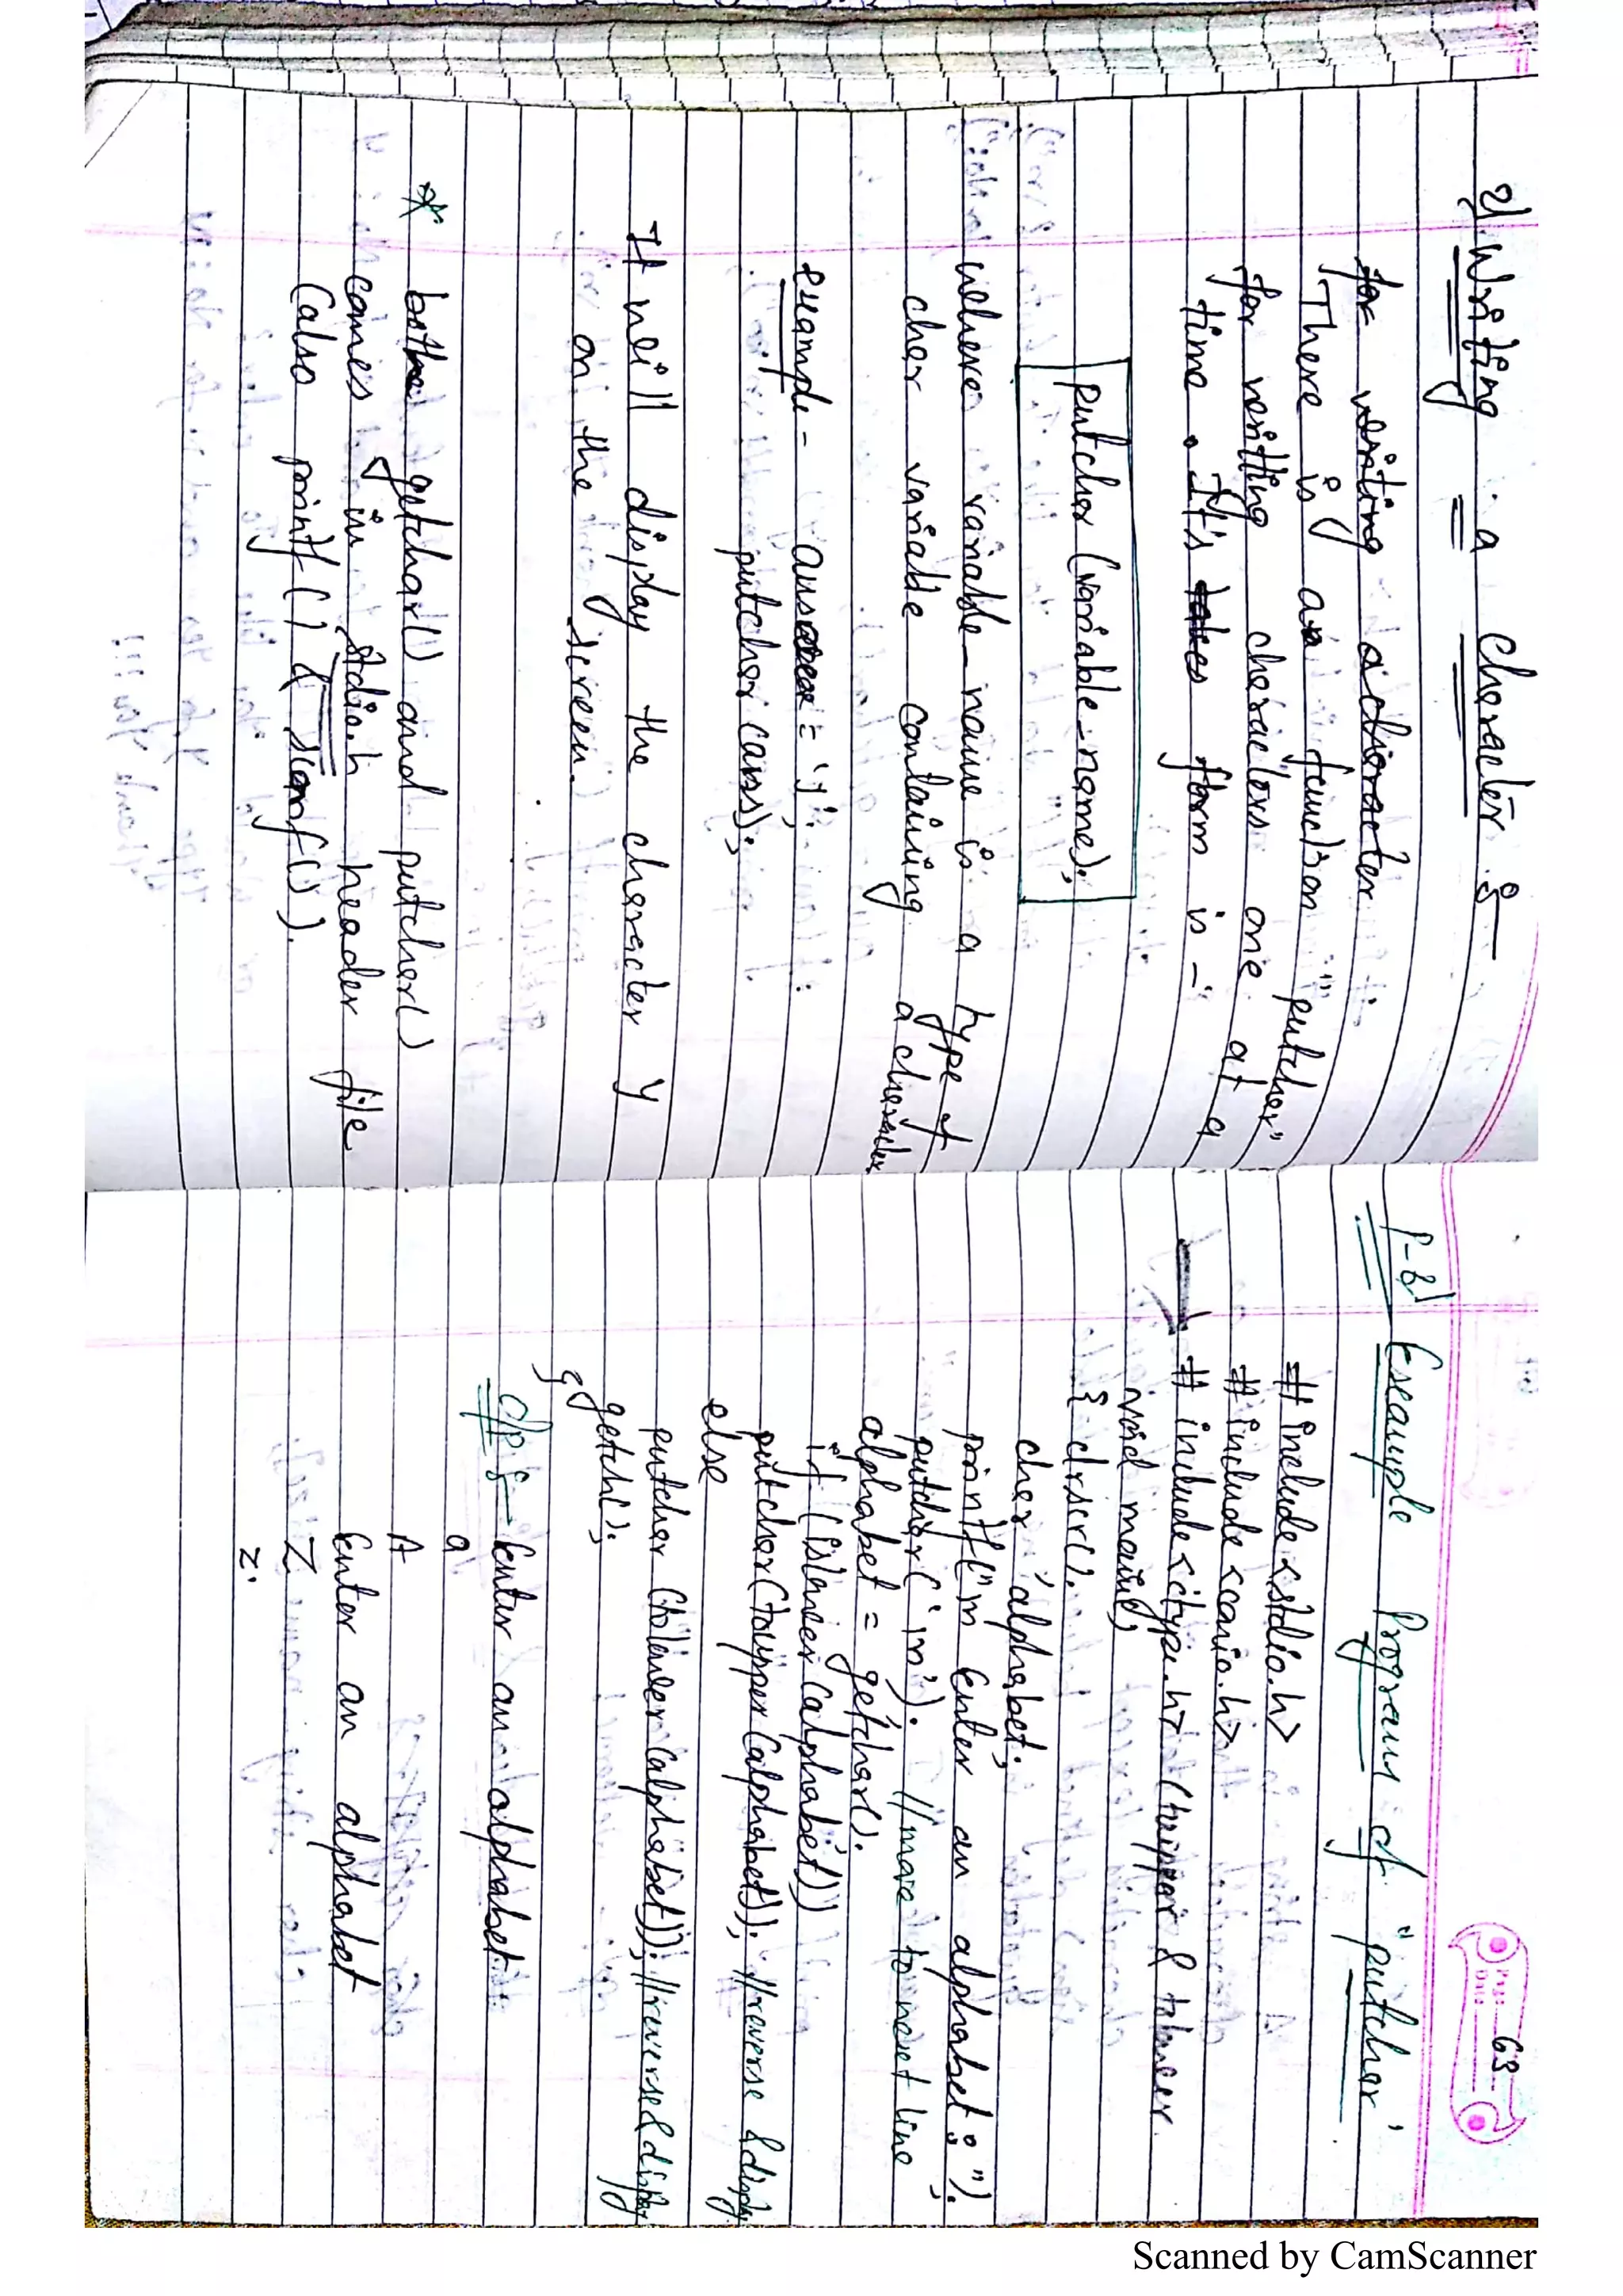 2) Writing a character :-
for writing a character
There is a function "putchar"
for writing characters one at a
time. It's takes form is -
putchar (variable_name);
where variable_name is a type of
char variable containing a character
example - answer = 'y';
putchar (ans);
It will display the character y
on the screen.
* both getchar() and putchar()
comes in stdio.h header file
(also printf() & scanf()).
63
P-8) Example Program of "putchar"
# include <stdio.h>
# include <conio.h>
# include <ctype.h> (toupper & tolower
void main()
{ clrscr();
char alphabet;
printf("\n Enter an alphabet:");
putchar('\n'); // move to next line
alphabet = getchar();
if (islower(alphabet))
putchar(toupper(alphabet)); // reverse & display
else
putchar (tolower(alphabet)); // reverse & display
getch();
}
O/P :- Enter an alphabet
a
A
Enter an alphabet
Z
z.
Scanned by CamScanner